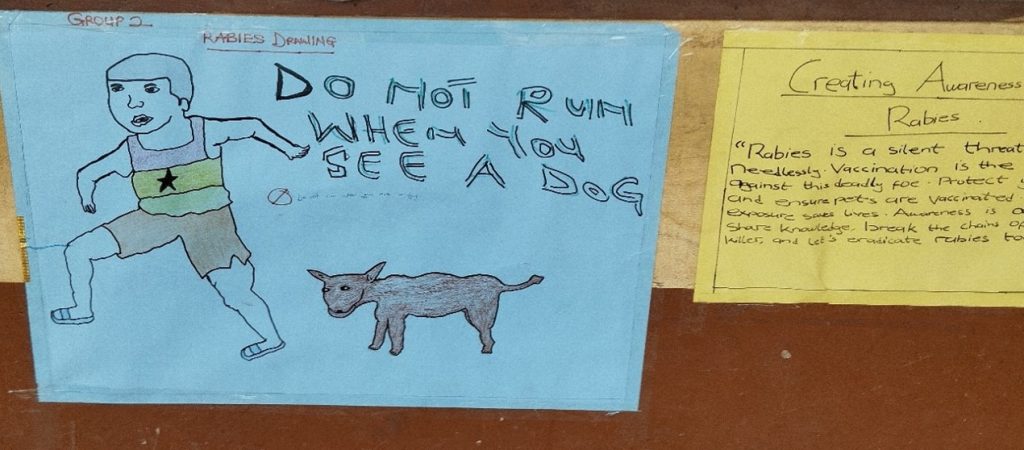 GROUP 2
RABIES DRAWING
DO NOT RUN
WHEN YOU
SEE A DOG
Creating Awareness
Rabies.
"Rabies is a silent threat
needlessly. Vaccination is the
against this deadly foe. Protect
and ensure pets are vaccinated.
exposure saves lives. Awareness is
Share knowledge, break the chains of
killer, and let's eradicate rabies